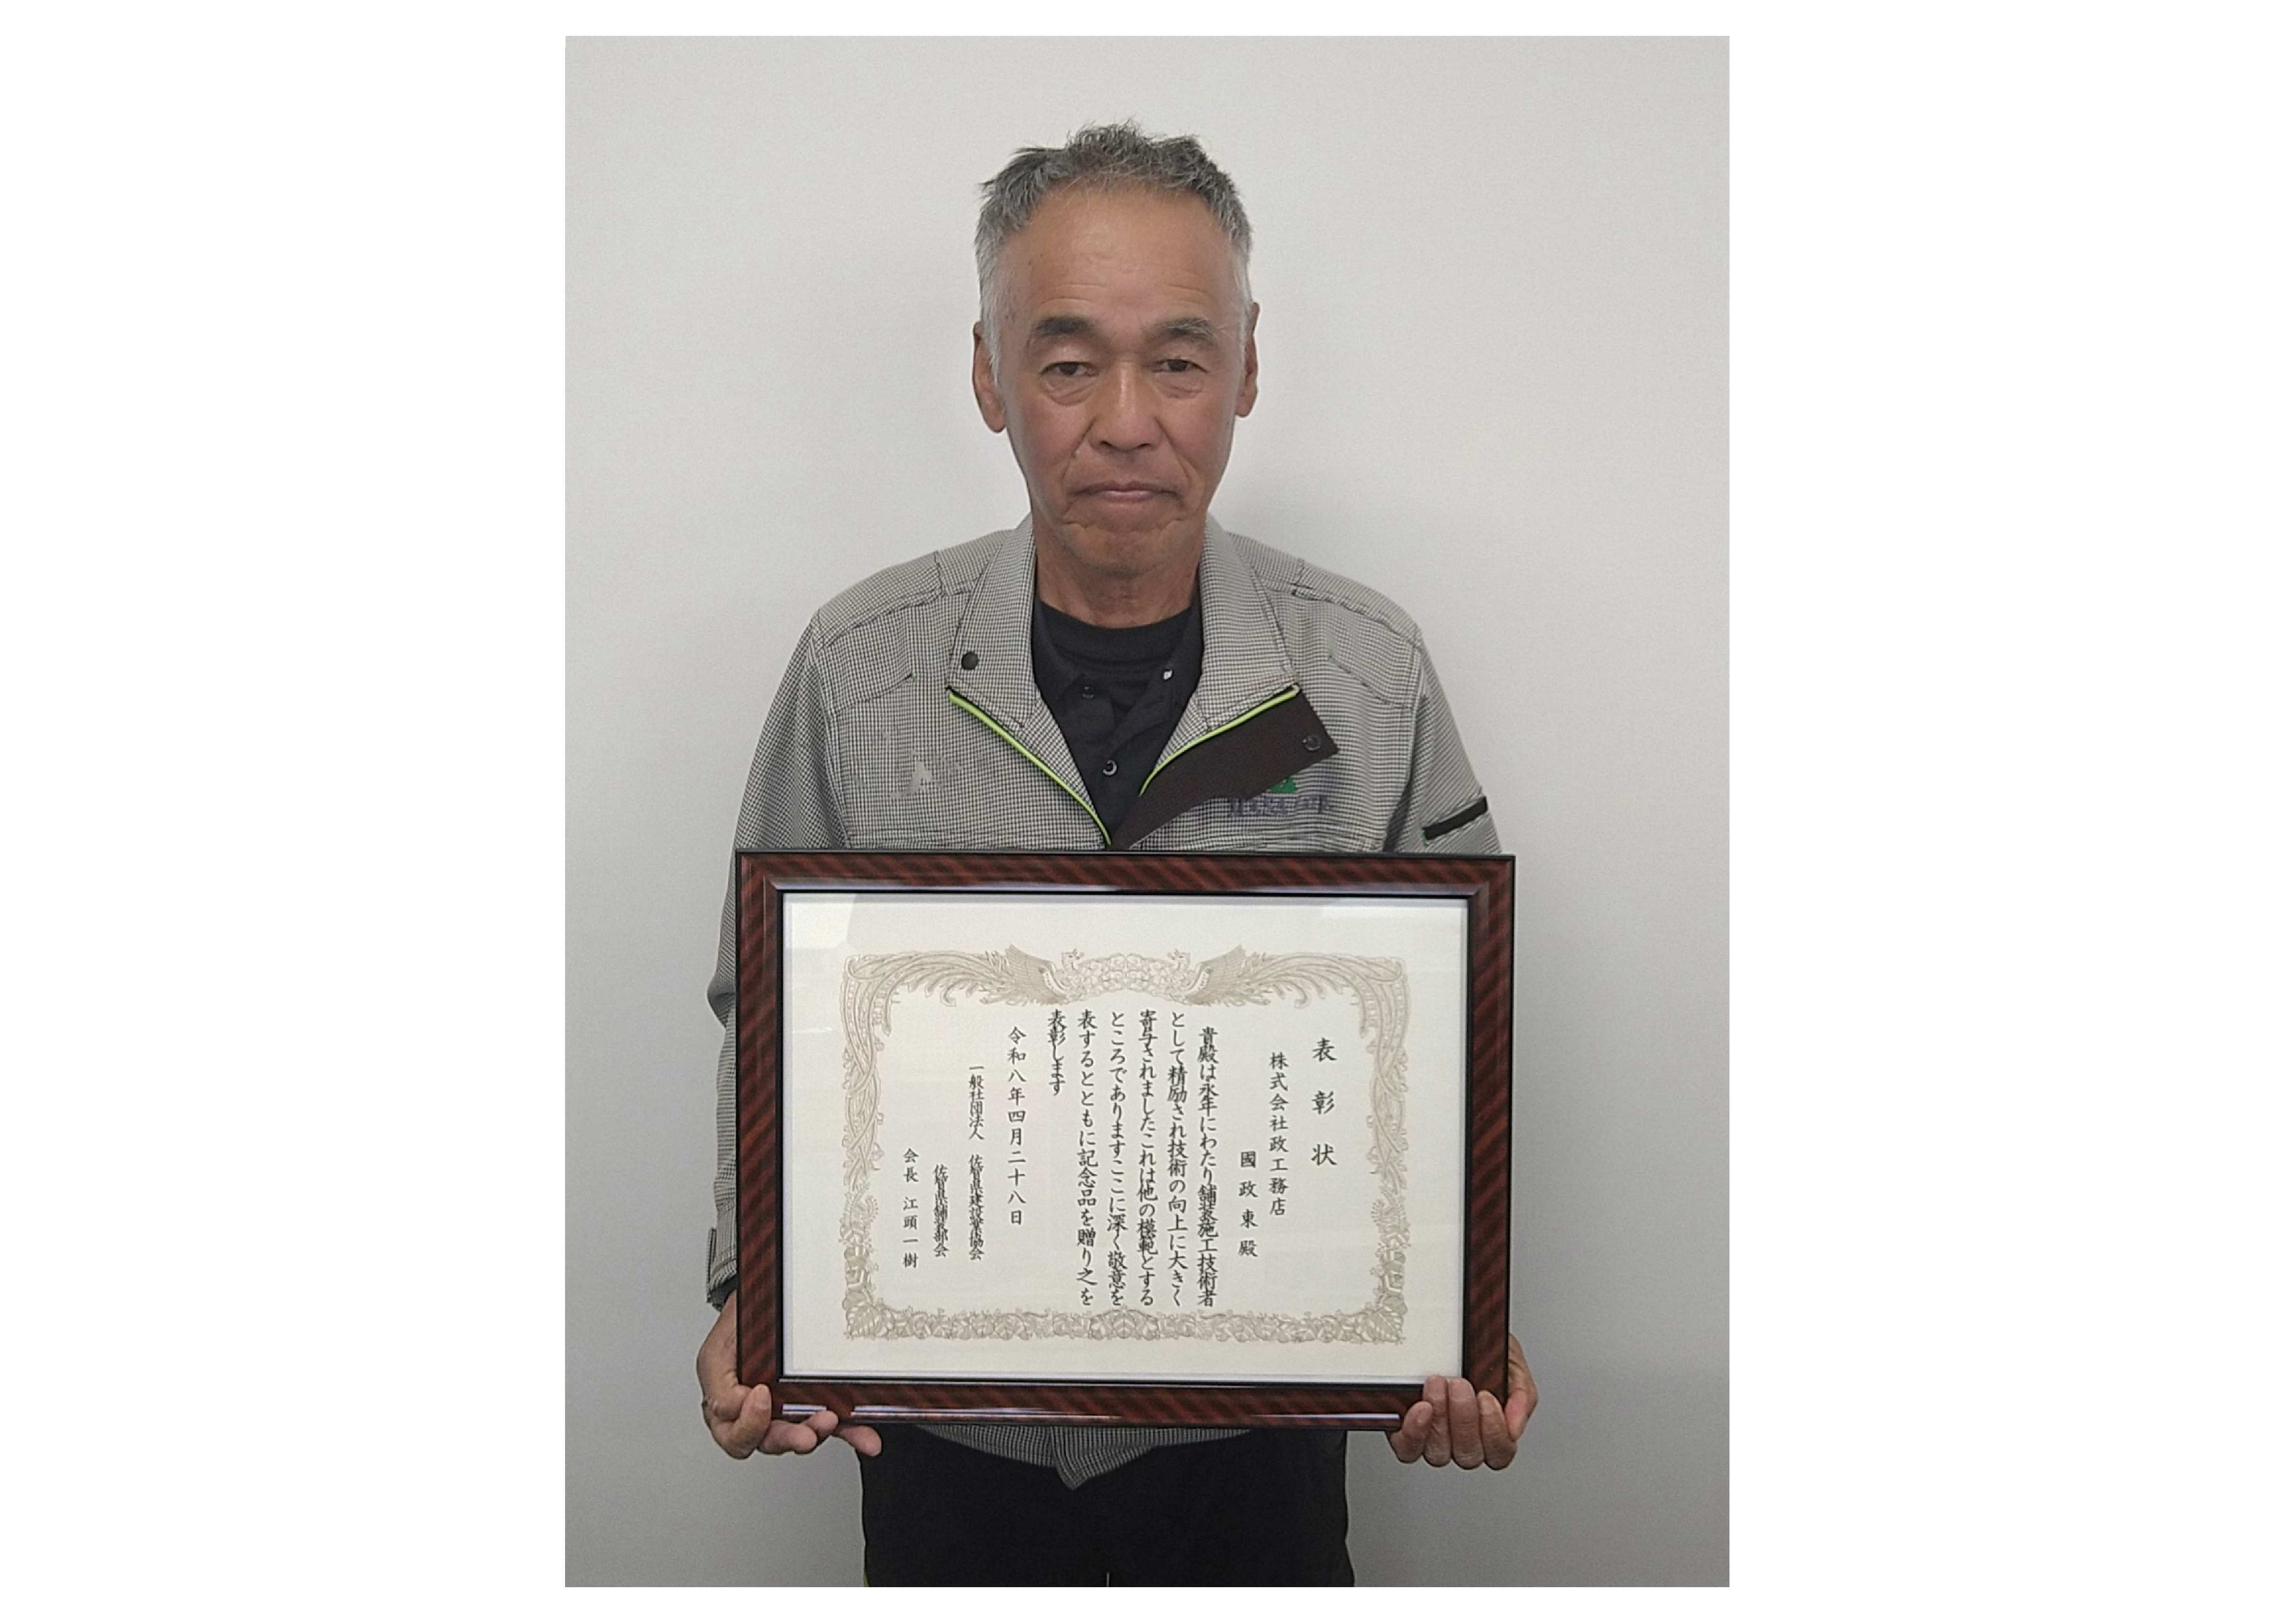 表彰状
株式会社政工務店
國政東殿
貴殿は永年にわたり舗装施工技術者
として精励され技術の向上に大きく
寄与されましたこれは他の模範とする
ところでありますここに深く敬意を
表するとともに記念品を贈り之を
表彰します
令和八年四月二十八日
一般社団法人 佐賀県建設業協会
佐賀県舗装部会
会長 江頭一樹